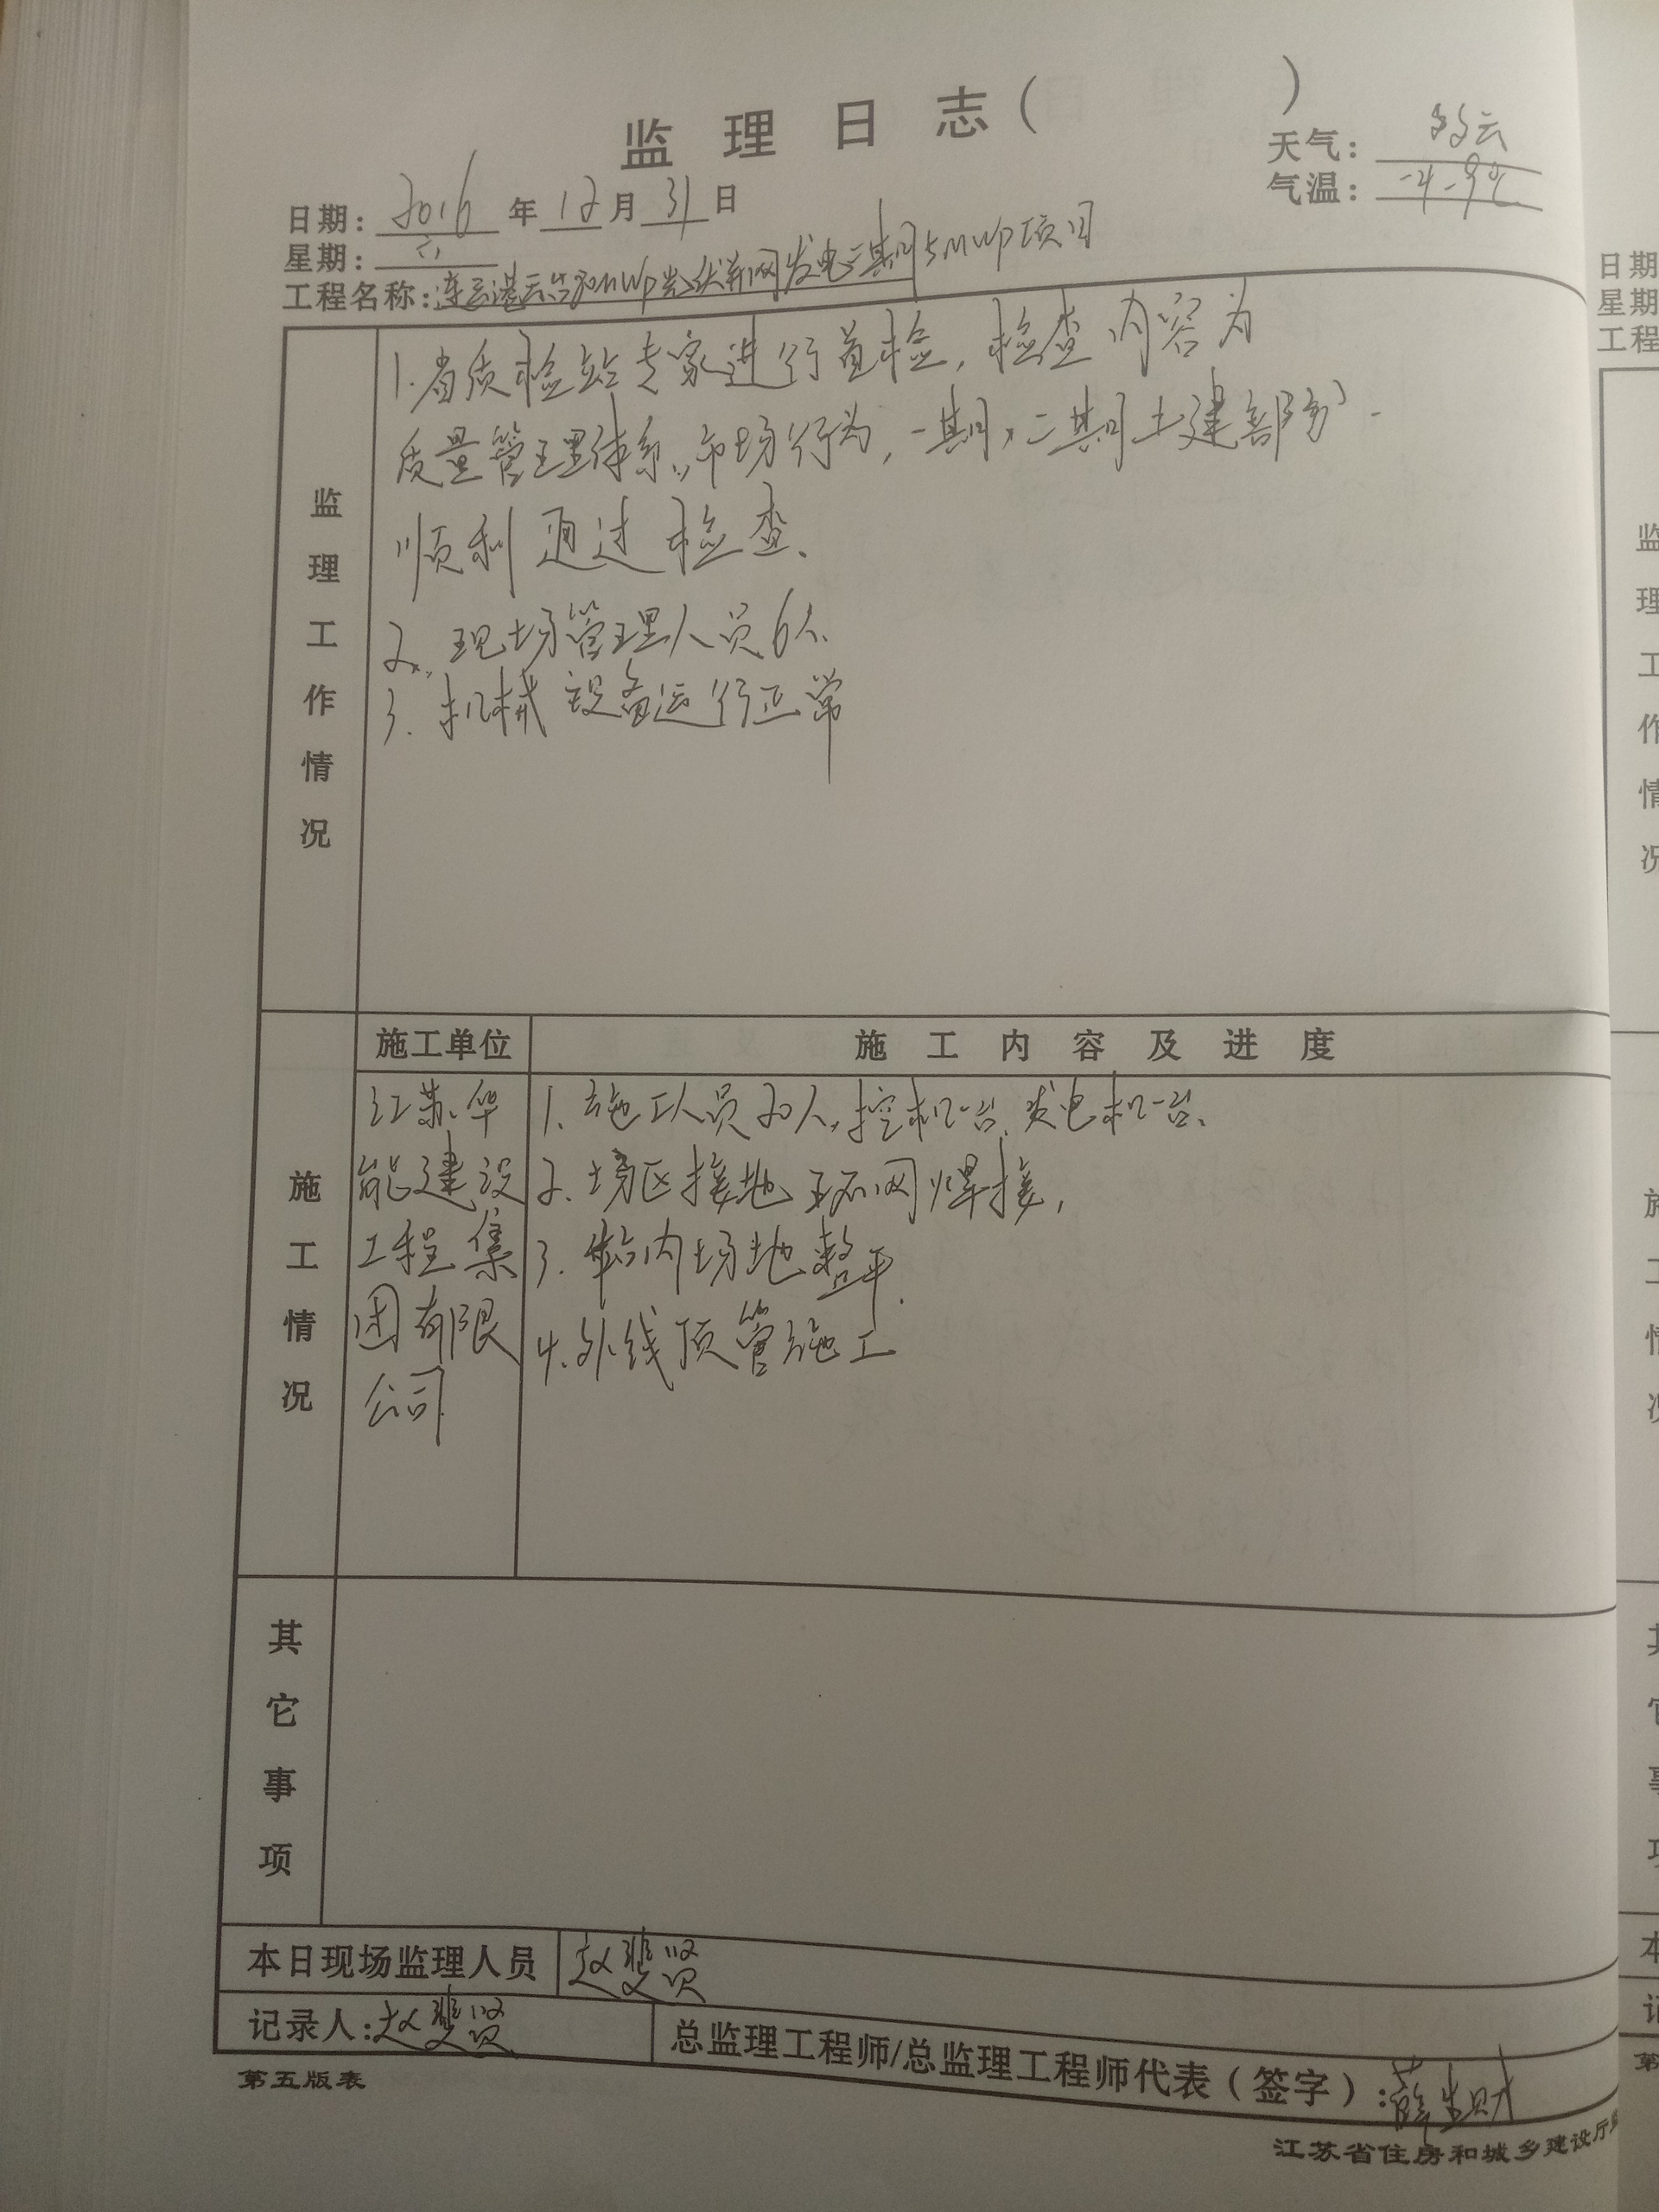 监理日志( )
天气: 多云
气温: -4-9℃
日期: 2016 年 12 月 31 日
星期: 六
工程名称: 连云港云台20MWp光伏并网发电二期5MWp项目
监理工作情况
1.省质检站专家进行首检,检查内容为
质量管理体系、市场行为,一期、二期土建部分.
顺利通过检查、
2、现场管理人员6人.
3.机械设备运行正常
施工情况
施工单位
施工内容及进度
江苏华
能建设
工程集
团有限
公司
1.施工人员20人,挖机一台、发电机一台、
2.场区接地环网焊接,
3.站内场地整平.
4.外线顶管施工
其它事项
本日现场监理人员 赵 贤
记录人:赵 贤
总监理工程师/总监理工程师代表(签字):薛生财
第五版表
江苏省住房和城乡建设厅
日期
星期
工程